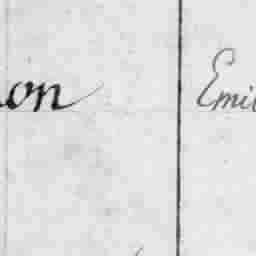 on Emi